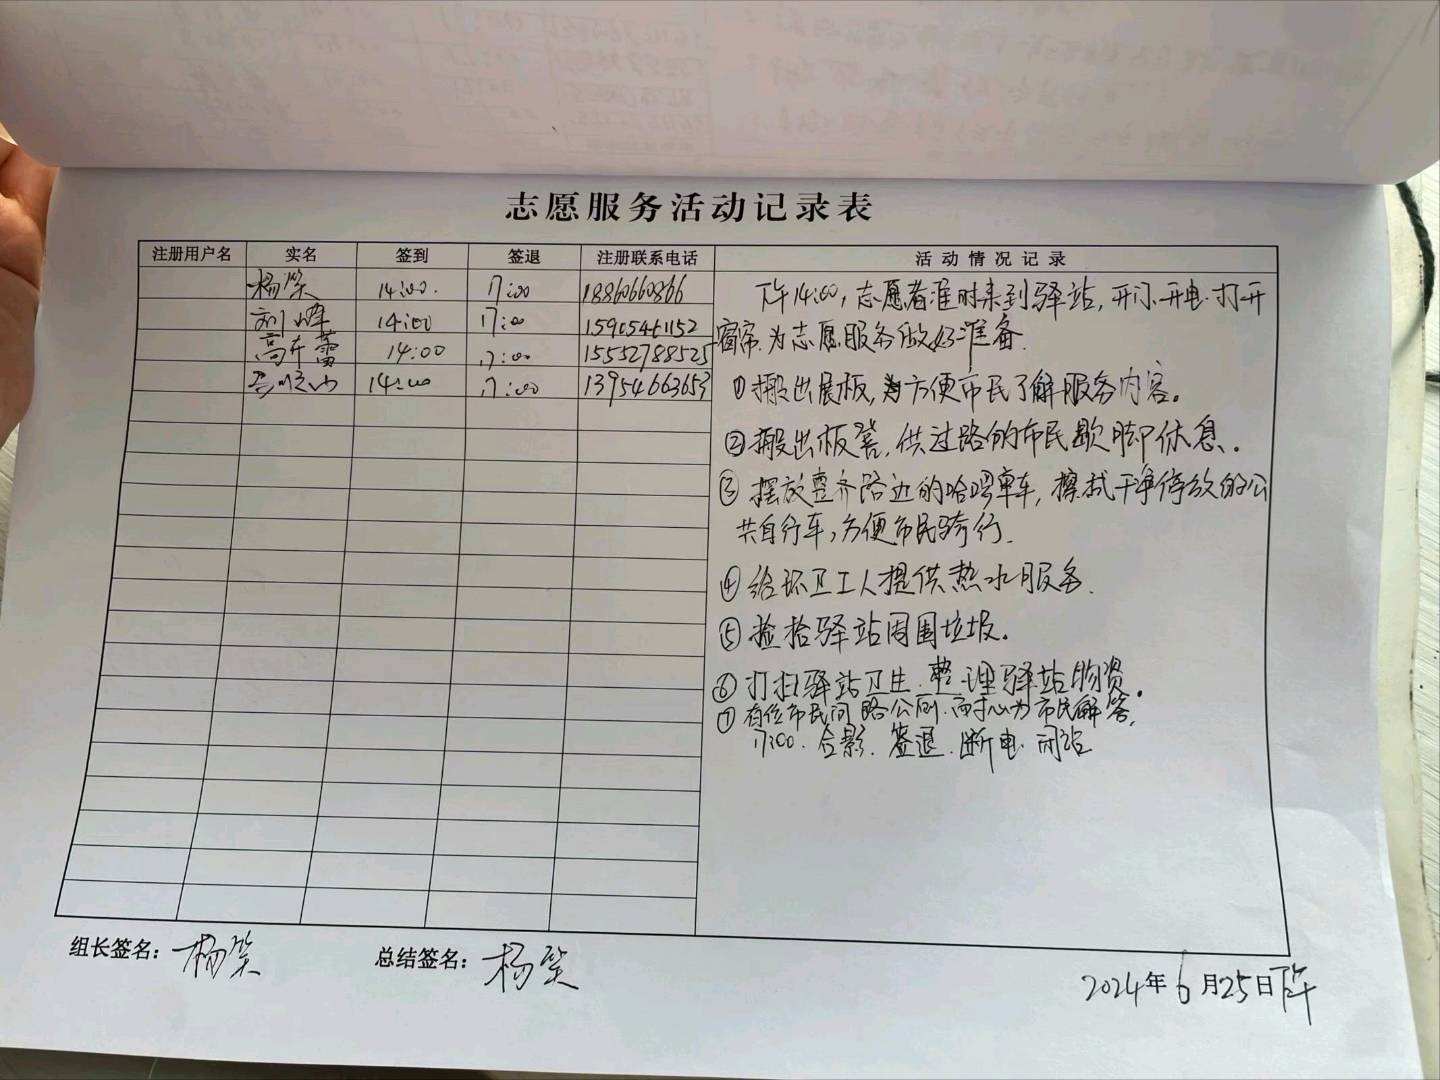 志愿服务活动记录表
注册用户名 实名 签到 签退 注册联系电话 活动情况记录
杨笑 14:00. 17:00 18860660866
刘峰 14:00 17:00 15905461152
高在蕾 14:00 17:00 15552788525
14:00 17:00 13954663653
下午14:00,志愿者准时来到驿站,开门.开电.打开
窗帘.为志愿服务做好准备.
①搬出展板,为方便市民了解服务内容。
②搬出板凳,供过路的市民歇脚休息。
③摆放整齐路边的哈啰单车,擦拭干净停放的公
共自行车,方便市民骑行.
④给环卫工人提供热水服务.
⑤捡拾驿站周围垃圾.
⑥打扫驿站卫生.整理驿站物资.
⑦有位市民问路公厕.耐心为市民解答,
17:00.合影.签退.断电.闭站
组长签名:杨笑 总结签名:杨笑
2024年6月25日下午